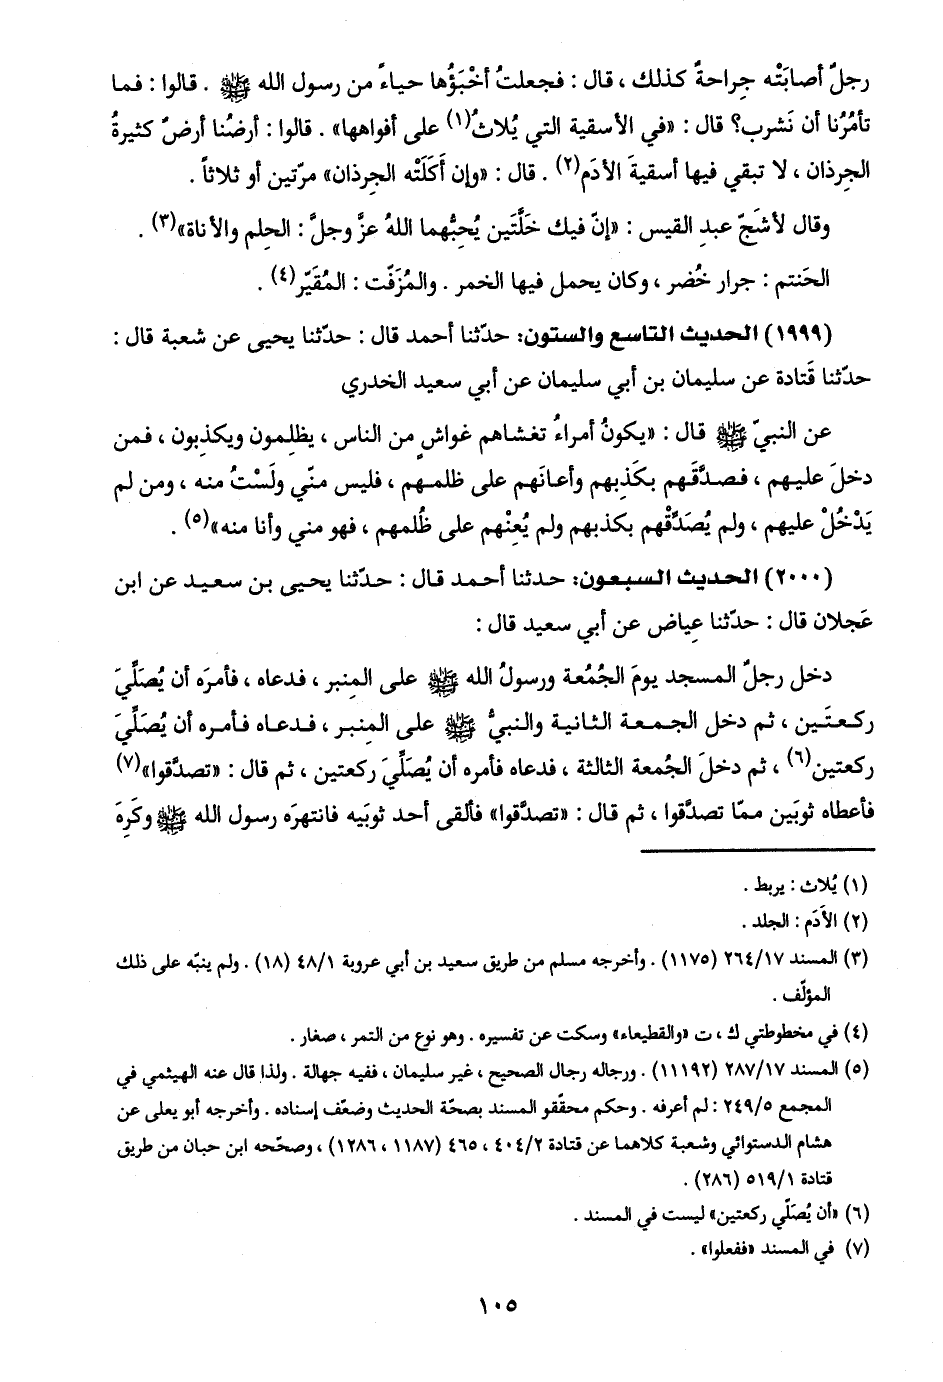 رجلٌ أصابَتْه جِراحةٌ كذلك ، قال : فجعلتُ أخْبَؤُها حياءً من رسول الله ﷺ . قالوا : فما
تأمُرُنا أن نَشرب؟ قال : «في الأسقية التي يُلاثُ(١) على أفواهها» . قالوا : أرضُنا أرضٌ كثيرةُ
الجِرذان ، لا تبقي فيها أسقيةَ الأدَم(٢) . قال : «وإن أكَلَتْه الجِرذان» مرّتين أو ثلاثاً .
وقال لأشَجّ عبدِ القيس : «إنّ فيك خَلَّتَين يُحِبُّهما اللهُ عزَّ وجلَّ : الحِلم والأناة»(٣) .
الحَنتم : جرار خُضر ، وكان يحمل فيها الخمر . والمُزَفّت : المُقَيّر(٤) .
(١٩٩٩) الحديث التاسع والستون: حدّثنا أحمد قال : حدّثنا يحيى عن شعبة قال :
حدّثنا قَتادة عن سليمان بن أبي سليمان عن أبي سعيد الخدري
عن النبيّ ﷺ قال : «يكونُ أمراءُ تغشاهم غواشٍ من الناس ، يظلِمون ويكذِبون ، فمن
دخلَ عليهم ، فصدَّقَهم بكَذِبهم وأعانَهم على ظلمهم ، فليس منّي ولَسْتُ منه ، ومن لم
يَدْخُلْ عليهم ، ولم يُصَدِّقْهم بكذبهم ولم يُعِنْهم على ظُلمهم ، فهو مني وأنا منه»(٥) .
(٢٠٠٠) الحديث السبعون: حدثنا أحمد قال : حدّثنا يحيى بن سعيد عن ابن
عَجلان قال : حدّثنا عِياض عن أبي سعيد قال :
دخل رجلٌ المسجد يومَ الجُمُعة ورسولُ الله ﷺ على المِنبر ، فدعاه ، فأمرَه أن يُصَلِّيَ
ركعتَين ، ثم دخل الجمعة الثانية والنبيُّ ﷺ على المِنبر ، فدعاه فأمره أن يُصَلِّيَ
ركعتين(٦) ، ثم دخلَ الجُمعة الثالثة ، فدعاه فأمره أن يُصَلِّيَ ركعتين ، ثم قال : «تصدَّقوا»(٧)
فأعطاه ثوبَين ممّا تصدَّقوا ، ثم قال : «تصدَّقوا» فألقى أحد ثوبَيه فانتهرَه رسول الله ﷺ وكَرِهَ
(١) يُلاث : يربط .
(٢) الأَدَم : الجلد .
(٣) المسند ٢٦٤/١٧ (١١٧٥) . وأخرجه مسلم من طريق سعيد بن أبي عروبة ٤٨/١ (١٨) . ولم ينبّه على ذلك
المؤلّف .
(٤) في مخطوطتي ك ، ت «والقطيعاء» وسكت عن تفسيره . وهو نوع من التمر ، صغار .
(٥) المسند ٢٨٧/١٧ (١١١٩٢) . ورجاله رجال الصحيح ، غير سليمان ، ففيه جهالة . ولذا قال عنه الهيثمي في
المجمع ٢٤٩/٥ : لم أعرفه . وحكم محقّقو المسند بصحّة الحديث وضعّف إسناده . وأخرجه أبو يعلى عن
هشام الدستوائي وشعبة كلاهما عن قتادة ٤٠٤/٢ ، ٤٦٥ (١١٨٧ ، ١٢٨٦) ، وصحّحه ابن حبان من طريق
قتادة ٥١٩/١ (٢٨٦) .
(٦) «أن يُصَلّي ركعتين» ليست في المسند .
(٧) في المسند «ففعلوا» .
١٠٥